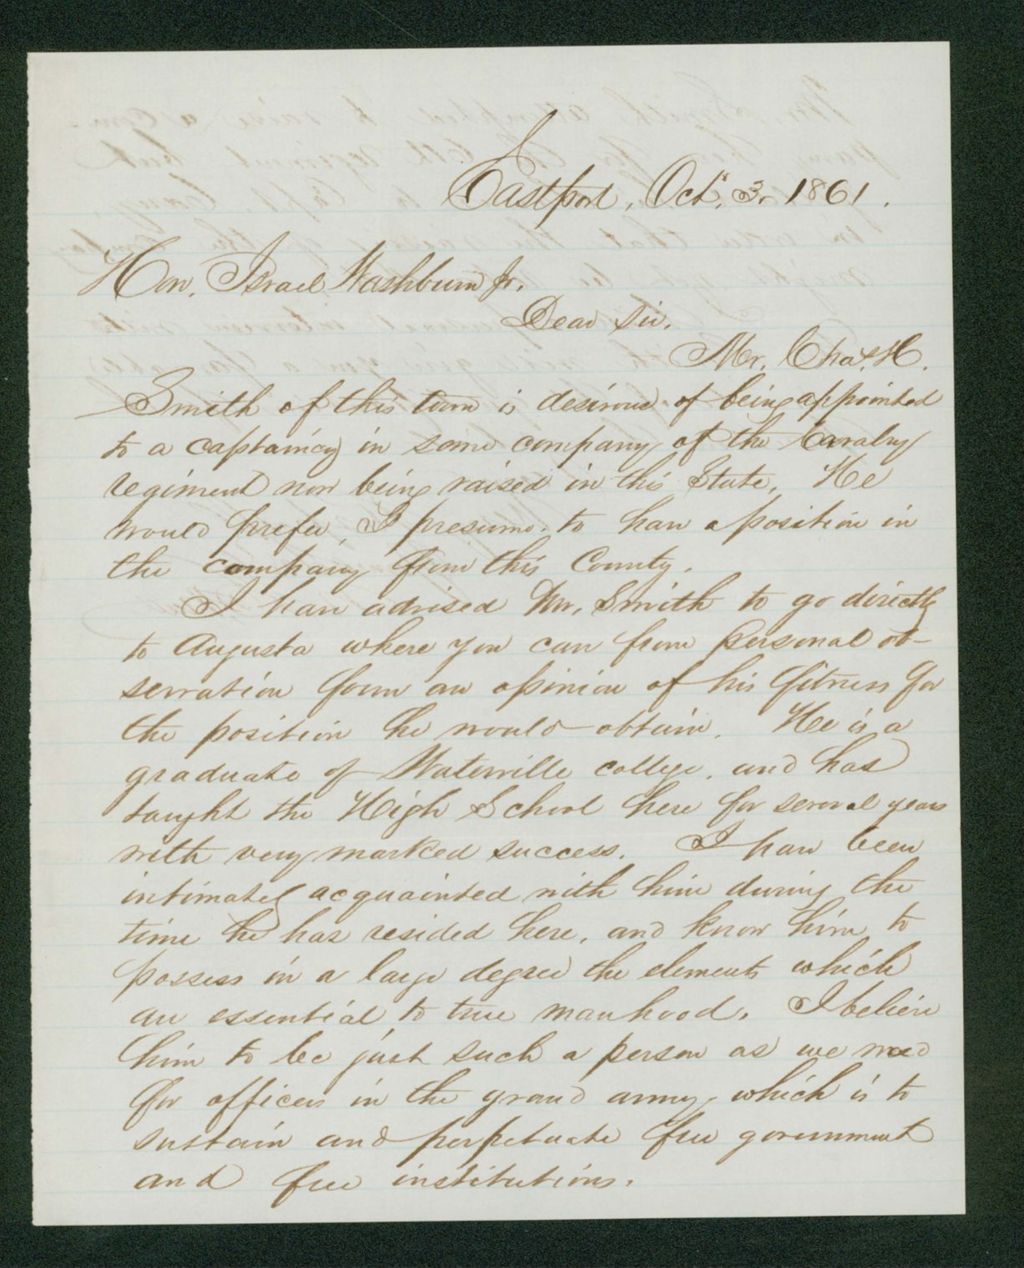 Eastport, Oct. 3. 1861.
Hon. Israel Washburn Jr.
Dear Sir.
Mr. Chas. H.
Smith of this town is desirous of being appointed
to a captaincy in some company of the Cavalry
regiment now being raised in this State. He
would prefer, I presume, to have a position in
the company from this County.
I have advised Mr. Smith to go directly
to Augusta where you can from personal ob-
servation form an opinion of his fitness for
the position he would obtain. He is a
graduate of Waterville college, and has
taught the High School here for several years
with very marked success. I have been
intimately acquainted with him during the
time he has resided here, and know him to
possess in a large degree the elements which
are essential to true manhood. I believe
him to be just such a person as we need
for officers in the grand army, which is to
sustain and perpetuate free government
and free institutions.